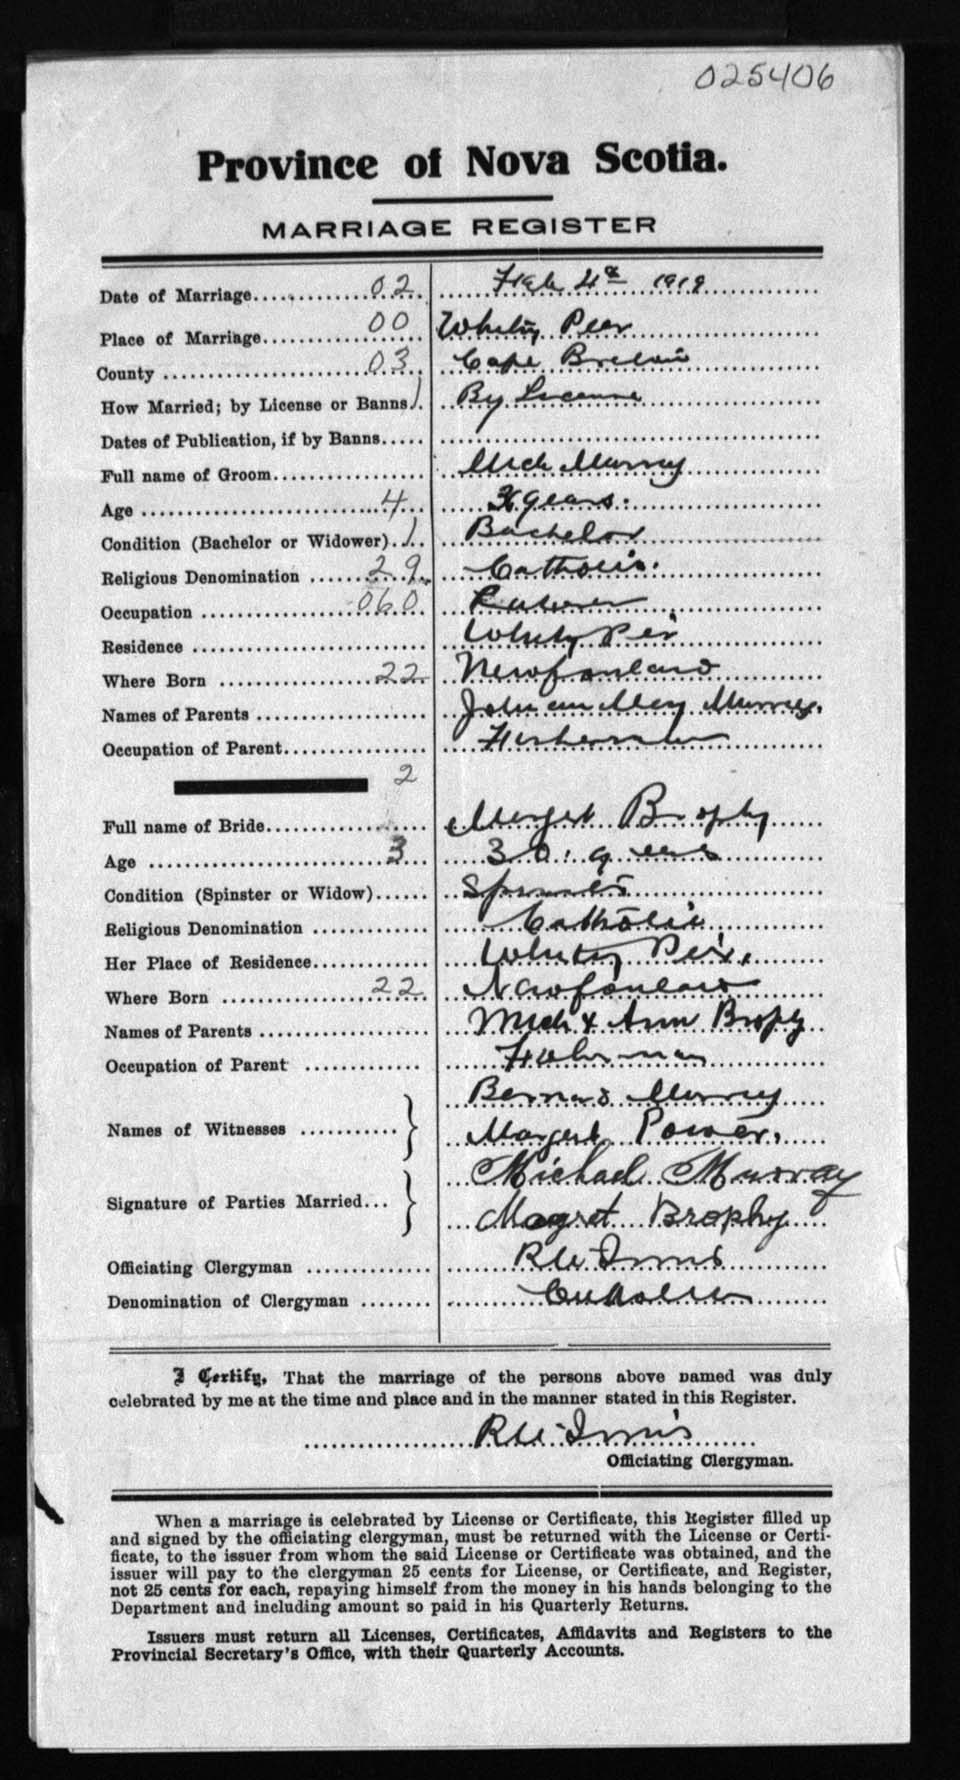 025406
Province of Nova Scotia.
MARRIAGE REGISTER
Date of Marriage 02 Feb 4th 1919
Place of Marriage 00 Whitny Peer
County 03 Cape Breton
How Married; by License or Banns 1 By License
Dates of Publication, if by Banns
Full name of Groom Mich Murray
Age 4 years.
Condition (Bachelor or Widower) 1 Bachelor
Religious Denomination 29 Catholic.
Occupation 060
Residence Whitny Peir
Where Born 22 Newfonland
Names of Parents John an Mary Murray.
Occupation of Parent Fisherman
2
Full name of Bride Margret Brophy
Age 3 30. years
Condition (Spinster or Widow) Spinster
Religious Denomination Catholic
Her Place of Residence Whitny Peir.
Where Born 22 Newfonland
Names of Parents Mich & Ann Brophy
Occupation of Parent Fisherman
Bernard Murray
Names of Witnesses Margret Power.
Michael Murray
Signature of Parties Married
Magret Brophy
Officiating Clergyman
Denomination of Clergyman Catholic
I Certify, That the marriage of the persons above named was duly
celebrated by me at the time and place and in the manner stated in this Register.
Officiating Clergyman.
When a marriage is celebrated by License or Certificate, this Register filled up
and signed by the officiating clergyman, must be returned with the License or Certi-
ficate, to the issuer from whom the said License or Certificate was obtained, and the
issuer will pay to the clergyman 25 cents for License, or Certificate, and Register,
not 25 cents for each, repaying himself from the money in his hands belonging to the
Department and including amount so paid in his Quarterly Returns.
Issuers must return all Licenses, Certificates, Affidavits and Registers to the
Provincial Secretary's Office, with their Quarterly Accounts.